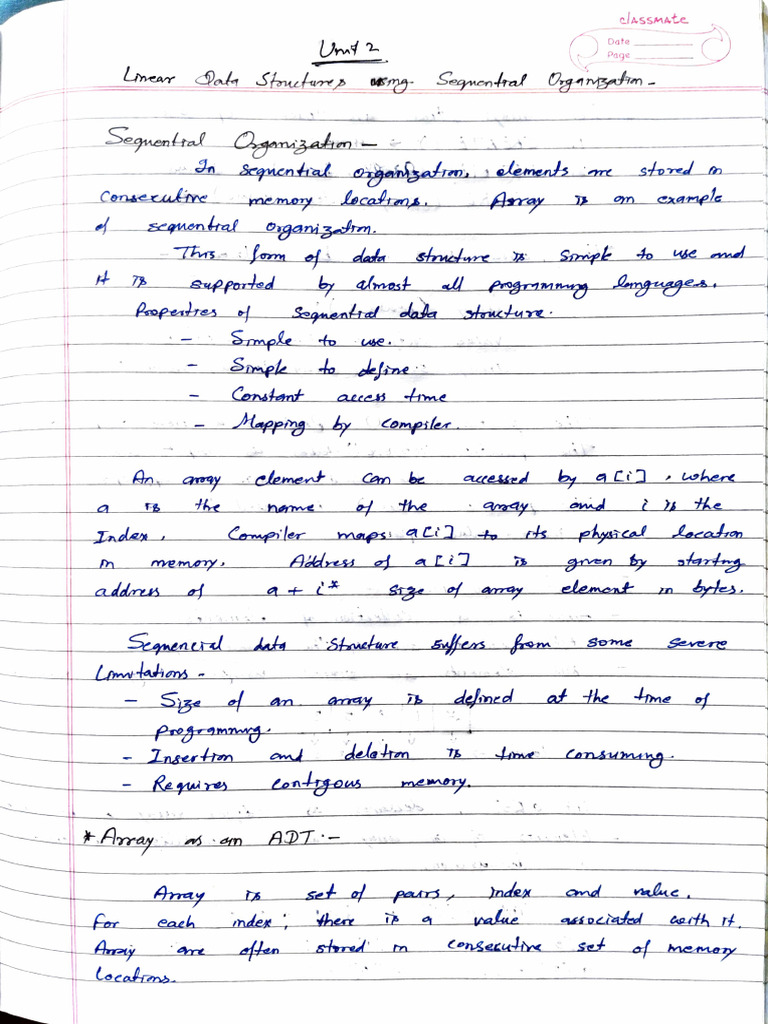 classmate
Date
Page
Unit 2
Linear Data Structures using Sequential Organization -
Sequential Organization -
In sequential organization, elements are stored in
consecutive memory locations. Array is an example
of sequential organization.
This form of data structure is simple to use and
it is supported by almost all programming languages.
Properties of sequential data structure.
- Simple to use.
- Simple to define
- Constant access time
- Mapping by compiler.
An array element can be accessed by a[i], where
a is the name of the array and i is the
Index. Compiler maps a[i] to its physical location
in memory. Address of a[i] is given by starting
address of a + i* size of array element in bytes.
Sequencial data structure suffers from some severe
limitations -
- Size of an array is defined at the time of
programming.
- Insertion and deletion is time consuming.
- Requires contigous memory.
* Array as an ADT :-
Array is set of pairs, index and value.
For each index, there is a value associated with it.
Array are often stored in consecutive set of memory
locations.